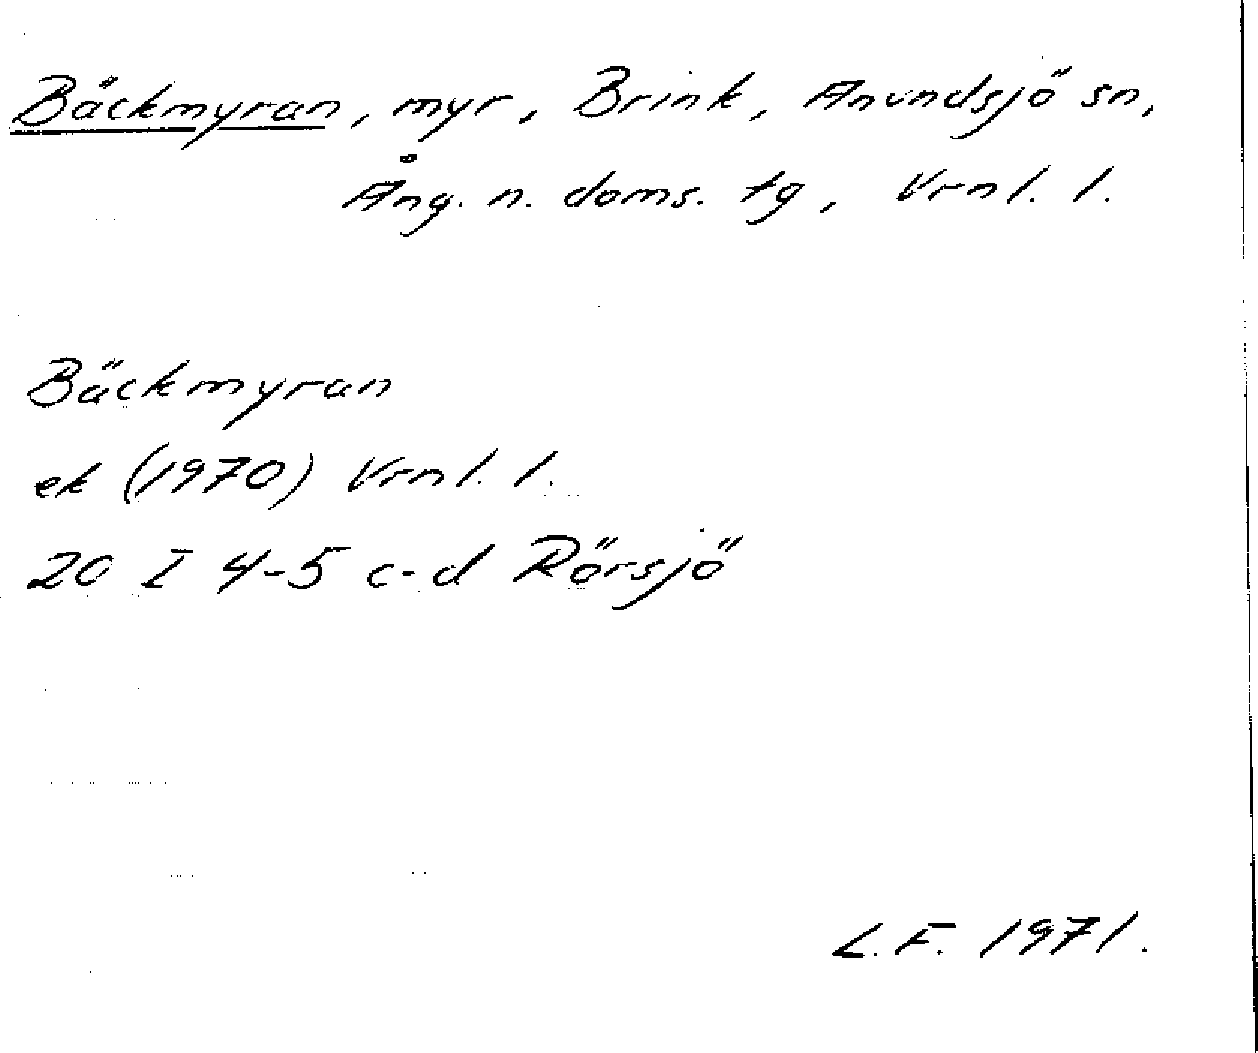 Bäckmyran, myr, Brink, Anundsjö sn,
Ång. n. doms. tg, Vrnl. l.
Bäckmyran
ek (1970) Vrnl. l.
20 I 4-5 c-d Rörsjö
L.F. 1971.